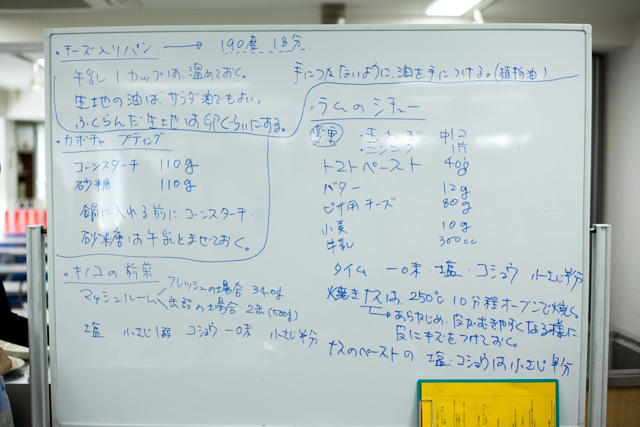 ・チーズ入りパン → 190度 18分
牛乳 1カップは、温めておく。
手につかないように、油を手につける。(植物油)
生地の油は、サラダ油でもよい。
ふくらんだ生地は卵ぐらいにする。
・カボチャ プティング
コーンスターチ 110g
砂糖 110g
鍋に入れる前に、コーンスターチ
砂糖は牛乳とまぜておく。
・キノコの前菜
マッシュルーム
フレッシュの場合 340g
缶詰の場合 2缶(500g)
塩 小さじ1弱 コショウ 一味 小さじ半分
・ラムのシチュー
変更 ・玉ねぎ 中1コ
・ニンニク 1片
トマトペースト 40g
バター 12g
ピザ用チーズ 80g
小麦 10g
牛乳 300cc
タイム・一味・塩・コショウ 小さじ半分
焼きナスは、250℃ 10分程オーブンで焼く。
→あらかじめ、皮がむきやすくなる様に
皮にキズをつけておく。
ナスのペーストの 塩・コショウは小さじ半分